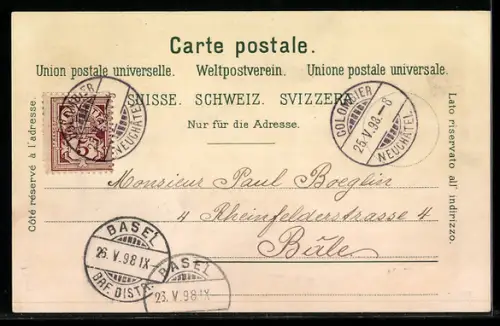 Carte postale.
Union postale universelle. Weltpostverein. Unione postale universale.
SUISSE. SCHWEIZ. SVIZZERA.
Nur für die Adresse.
Côté réservé à l'adresse.
Lato riservato all' indirizzo.
COLOMBIER
NEUCHÂTEL
5
COLOMBIER
25.V.98.-8
NEUCHÂTEL
Monsieur Paul Boeglin
4 Rheinfelderstrasse 4
Bâle
BASEL
26.V.98IX
BRF. DISTR.
BASEL
V.98IX